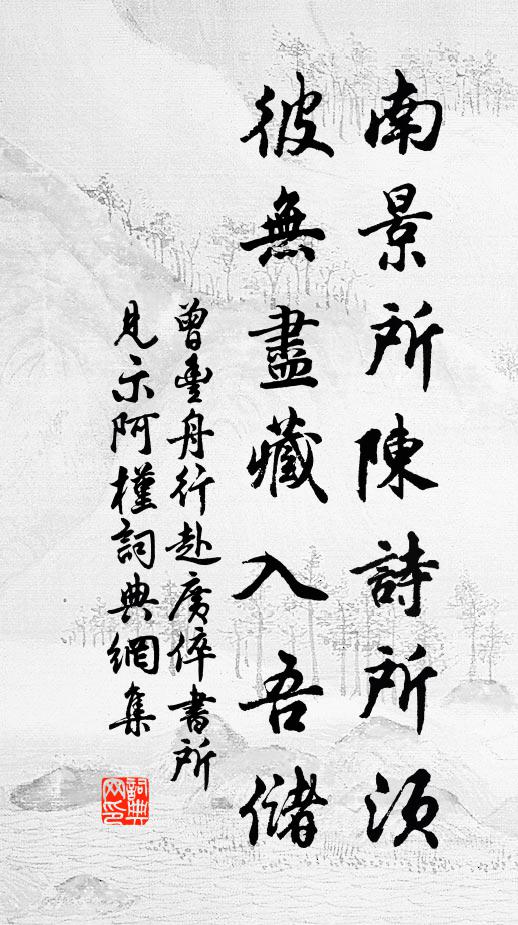 南景所陳詩所須
彼無盡藏入吾儲
曾豐舟行赴廣倅書所
見示阿槿詞典網集
詞典网印